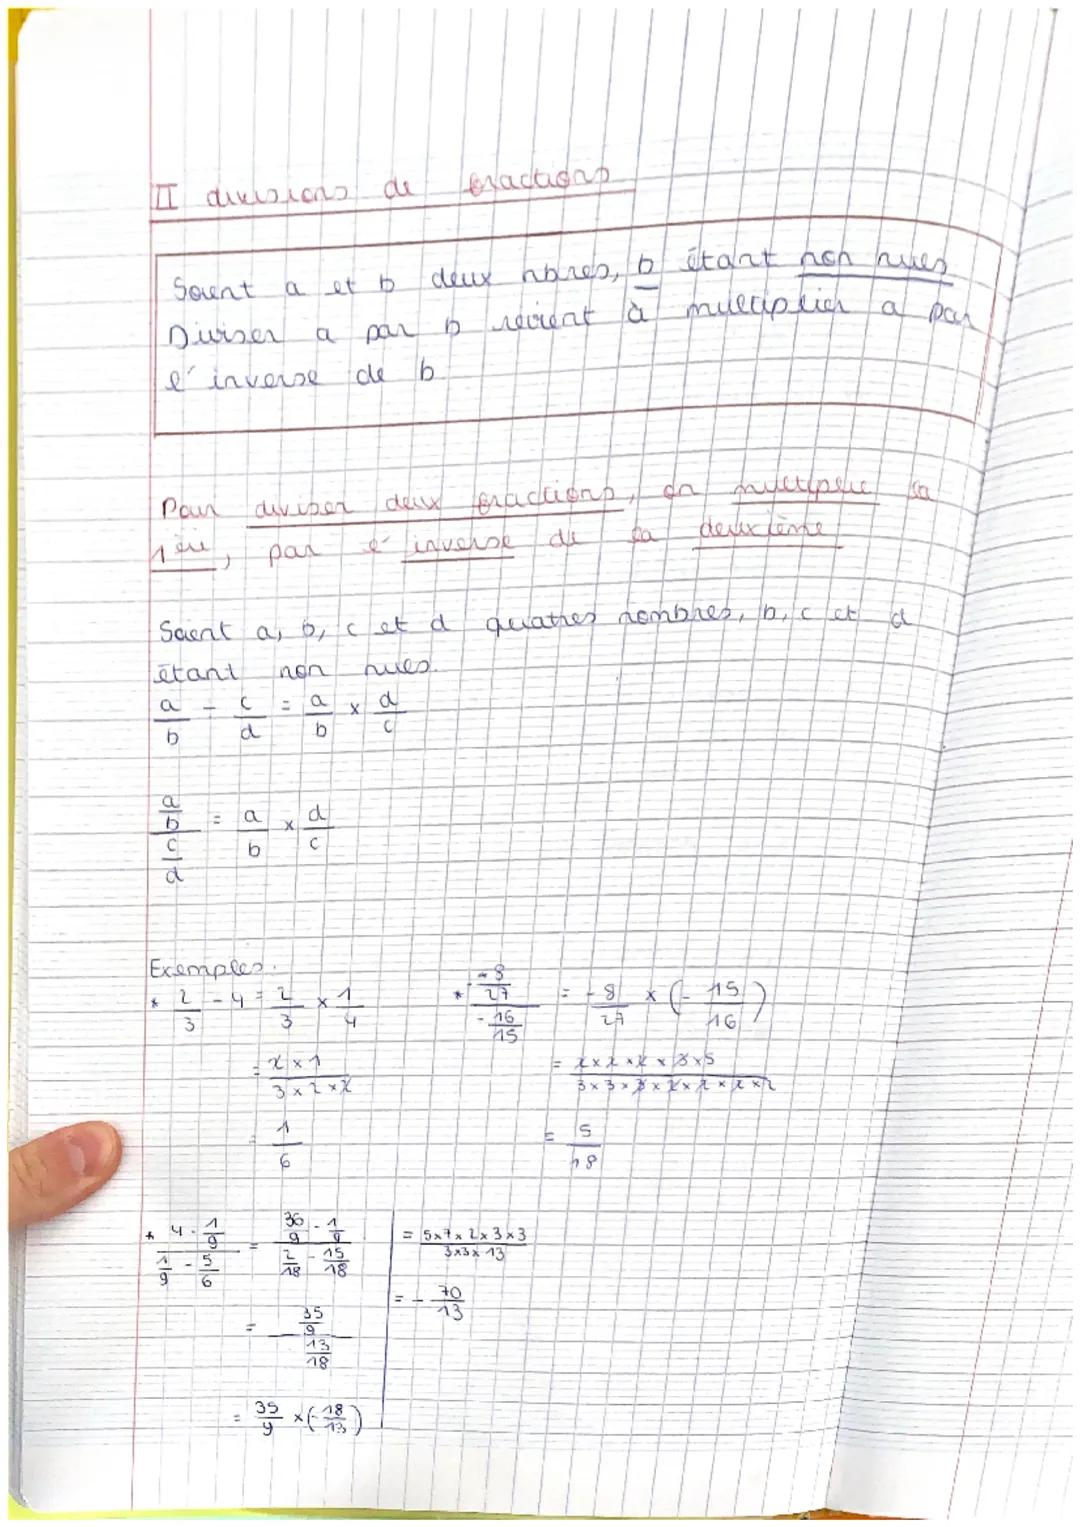 II divisions de fractions
Soient a et b deux nbres, b étant non nuls
Diviser a par b revient à multiplier a par
l'inverse de b
Pour diviser deux fractions, on multiplie la
1ère, par l'inverse de la deuxième
Soient a, b, c et d quatres nombres, b, c et d
étant non nuls.
a/b ÷ c/d = a/b × d/c
(a/b)/(c/d) = a/b × d/c
Exemples.
* 2/3 ÷ 4 = 2/3 × 1/4
= (2 × 1)/(3 × 2 × 2)
= 1/6
* (-8/27)/(-16/15) = -8/27 × (-15/16)
= (2 × 2 × 2 × 3 × 5)/(3 × 3 × 3 × 2 × 2 × 2 × 2)
= 5/18
* (4 - 1/9)/(1/9 - 5/6) = (36/9 - 1/9)/(2/18 - 15/18)
= (35/9)/(-13/18)
= 35/9 × (-18/13)
= (5 × 7 × 2 × 3 × 3)/(3 × 3 × 13)
= - 70/13